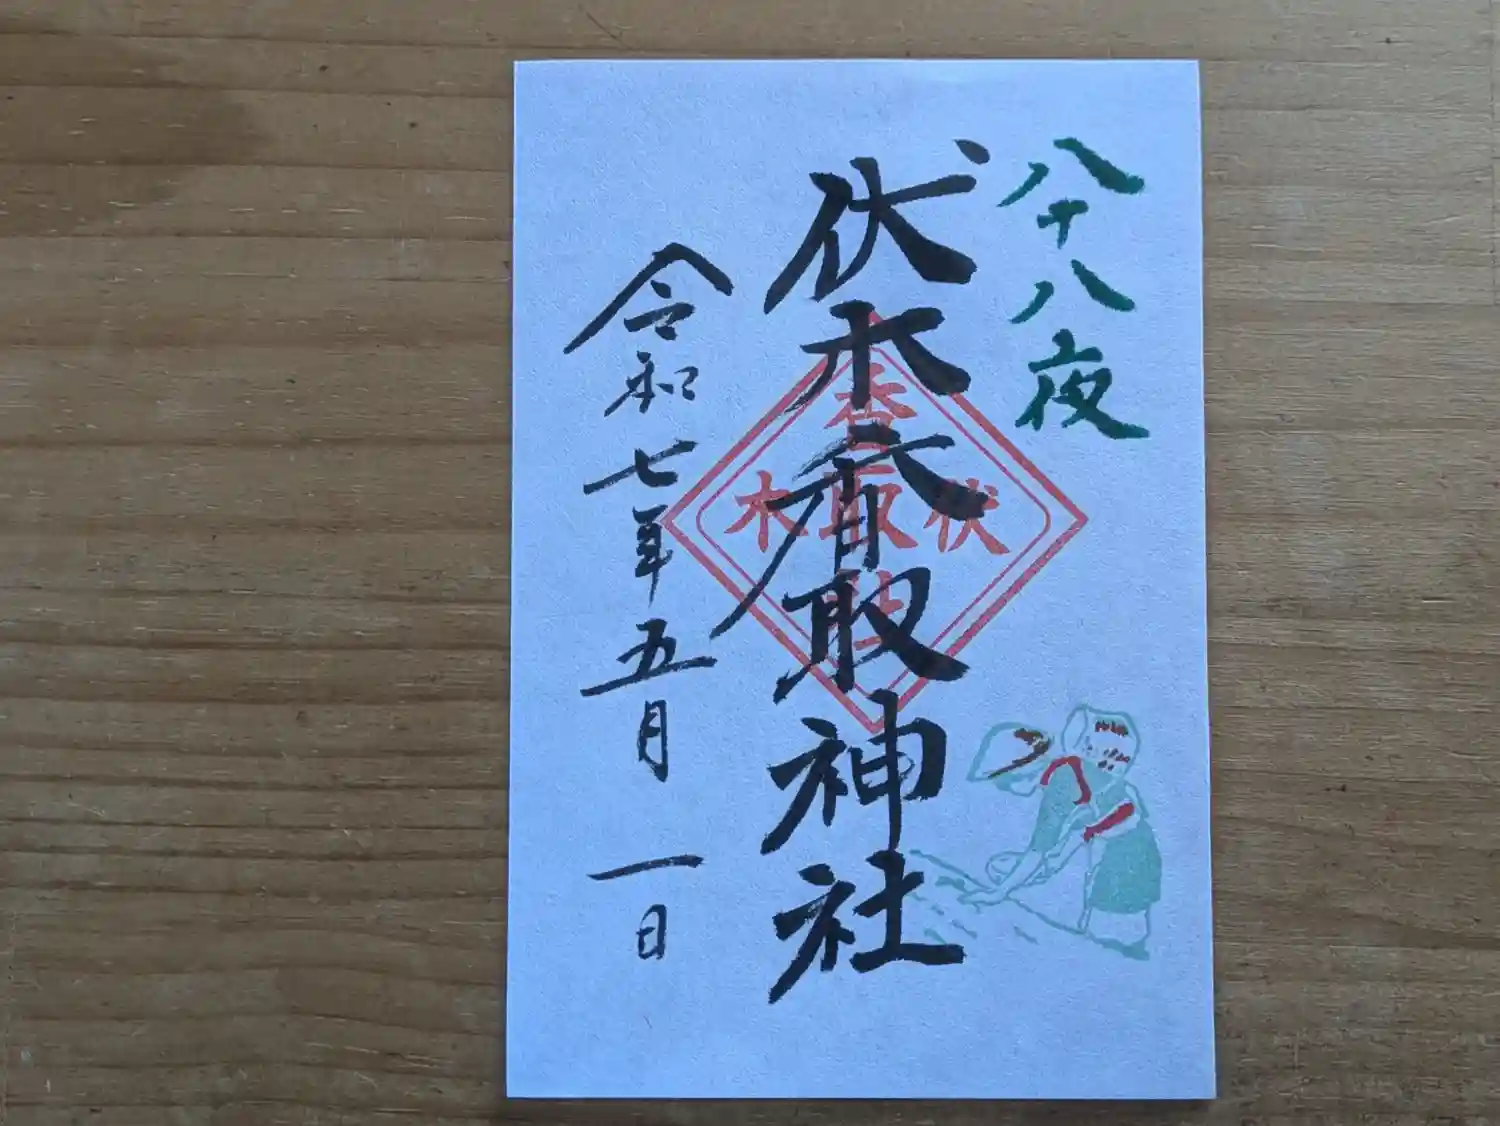 八十八夜
伏木香取神社
香取
伏木
社
令和七年五月一日